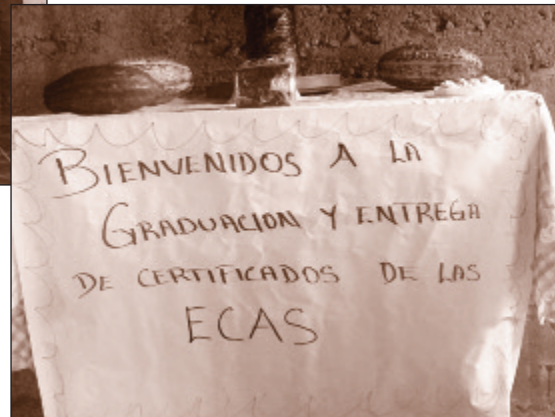 BIENVENIDOS A LA
GRADUACION Y ENTREGA
DE CERTIFICADOS DE LAS
ECAS